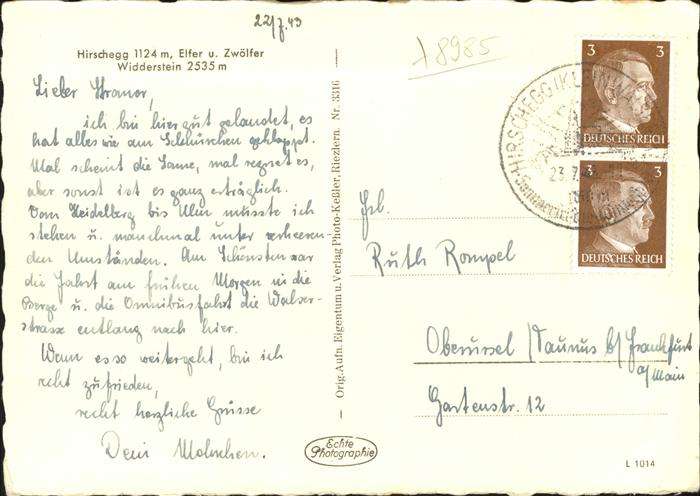 22/7.43
Hirschegg 1124 m, Elfer u. Zwölfer
Widderstein 2535 m
Lieber
ich bin hier gut gelandet, es
hat alles wie am Schnürchen geklappt.
Mal scheint die Sonne, mal regnet es,
aber sonst ist es ganz erträglich.
Von Heidelberg bis Ulm musste ich
stehen u. manchmal unter
den Umständen. Am Schönsten war
die Fahrt am frühen Morgen in die
Berge u. die Omnibusfahrt die Walser-
strasse entlang nach hier.
Wenn es so weitergeht, bin ich
recht zufrieden,
recht herzliche Grüsse
Dein
Orig. Aufn. Eigentum u. Verlag Photo-Keßler, Riezlern. Nr. 3316
Echte
Photographie
18985
3 3
DEUTSCHES REICH
3 3
DEUTSCHES REICH
HIRSCHEGG (KL
23.7.
Frl.
Ruth Rompel
Oberursel / Taunus b/ Frankfurt
a/ Main
Gartenstr. 12
L 1014